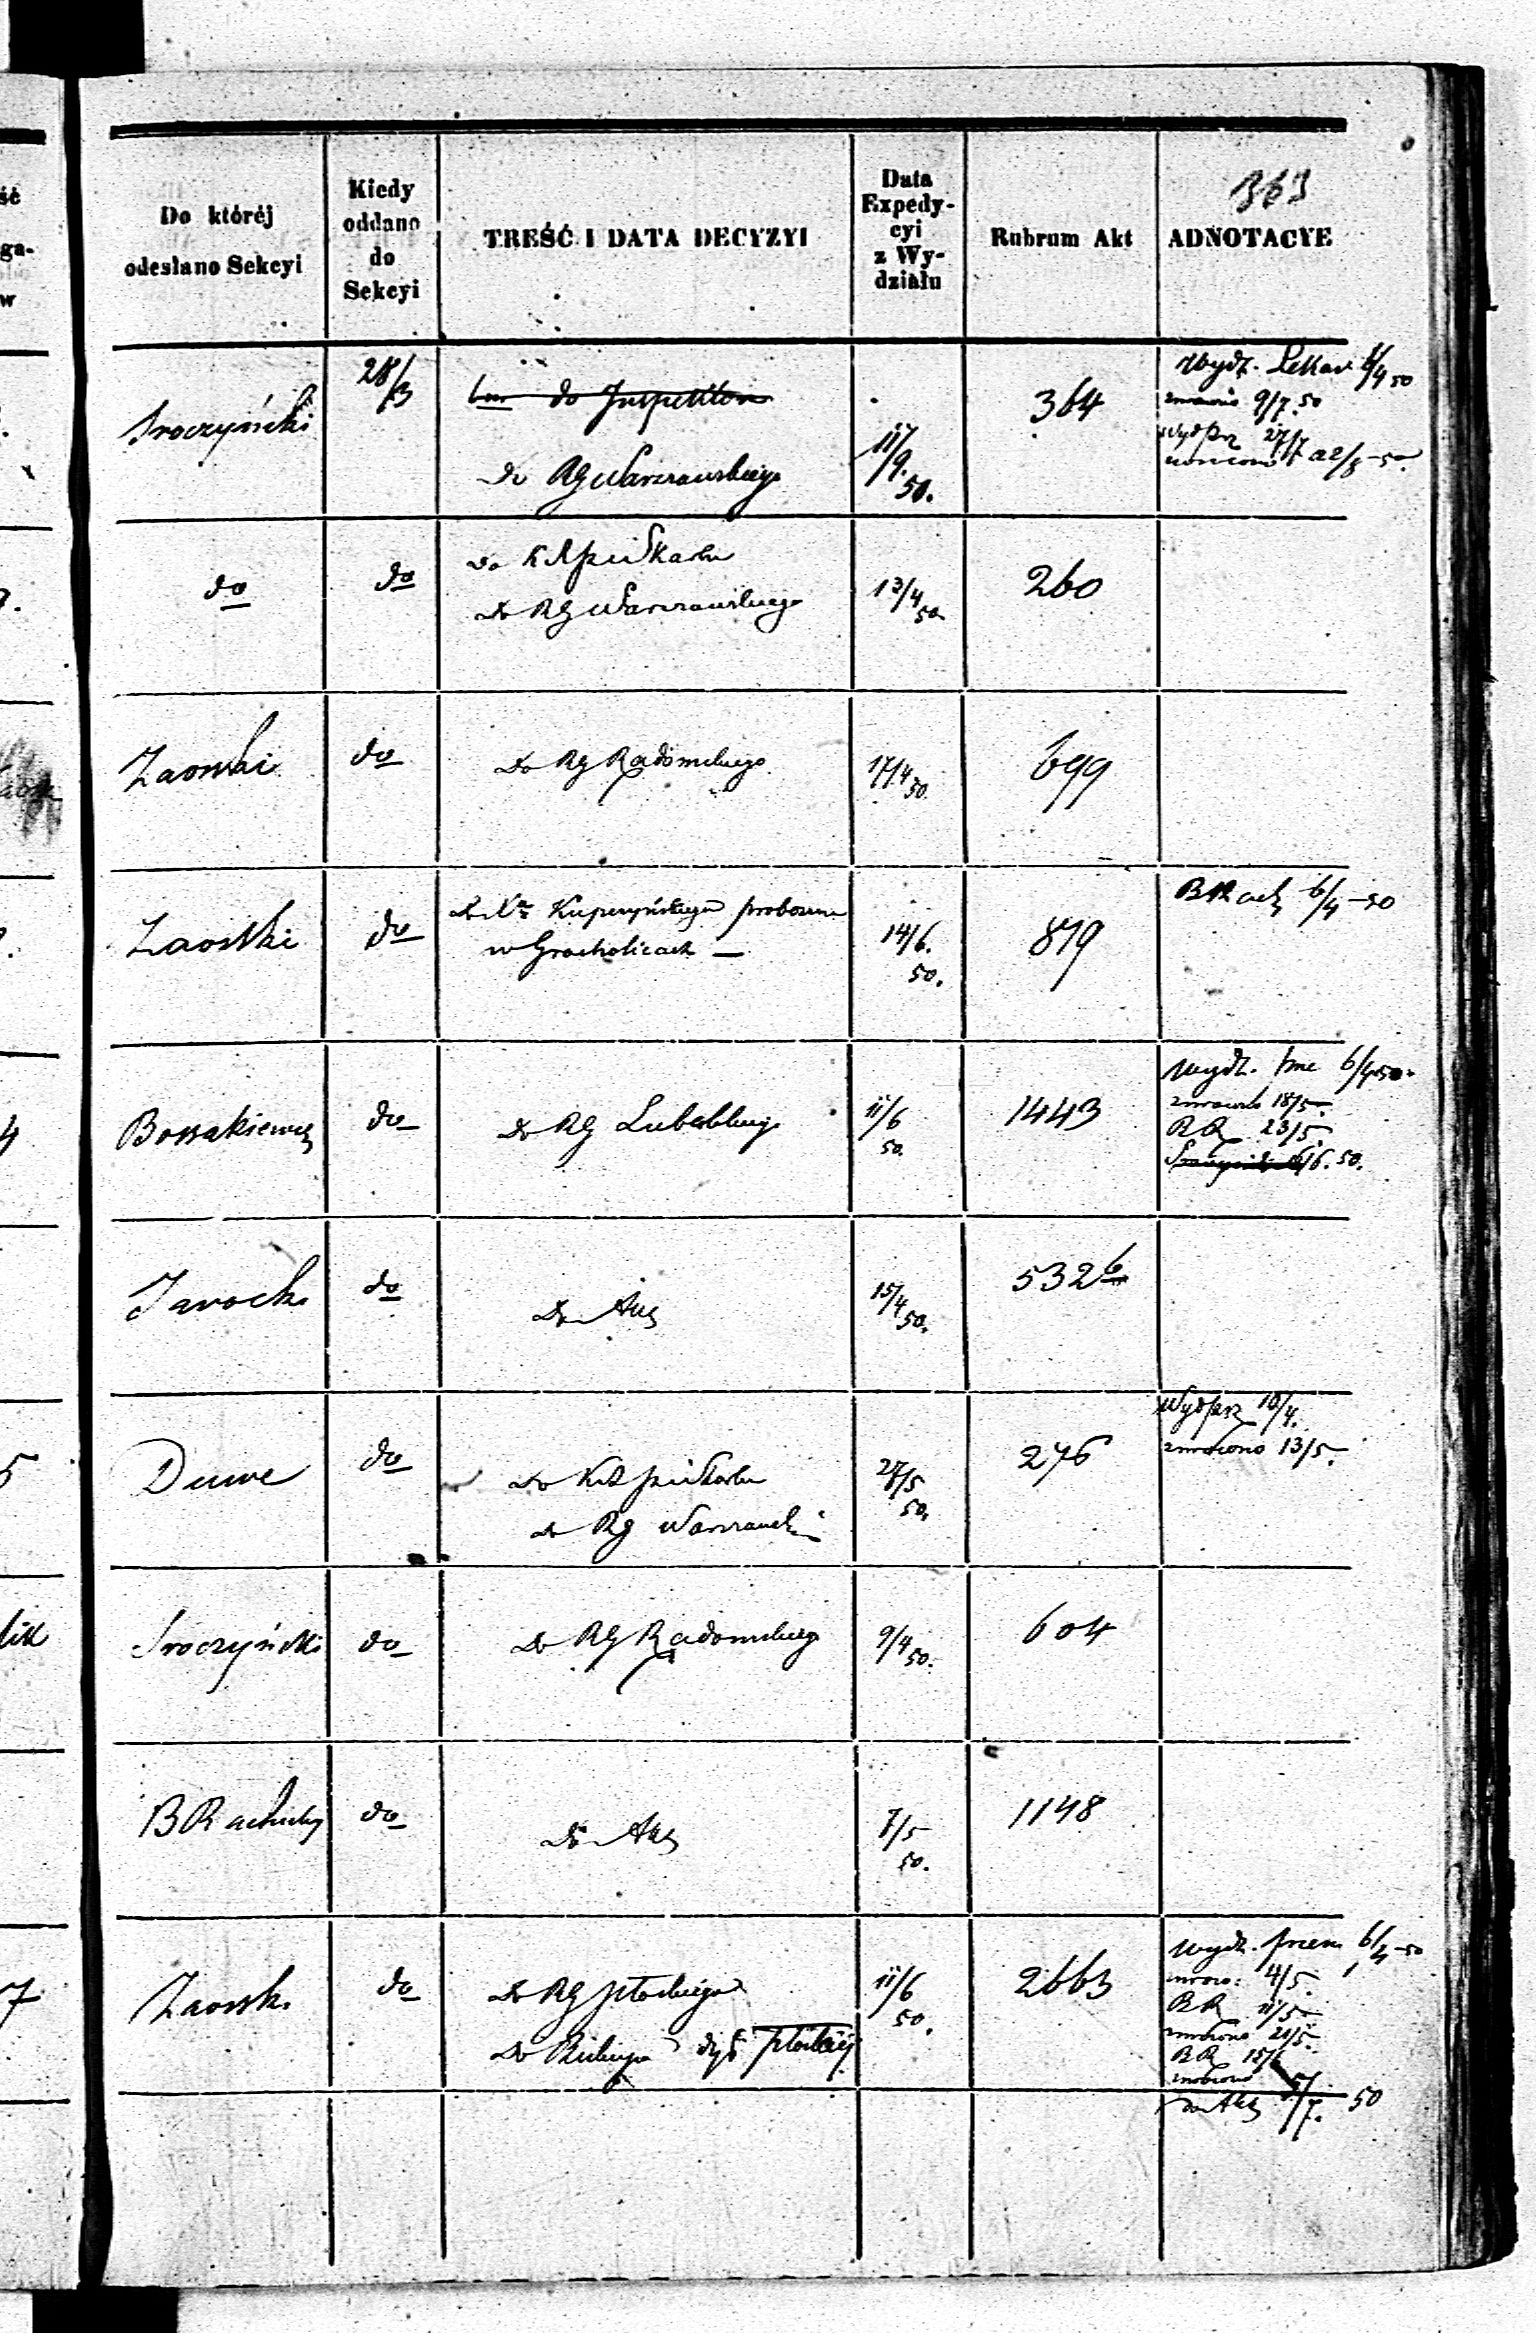 363
Do któréj
odesłano Sekcyi
Kiedy
oddano
do
Sekcyi
TREŚĆ I DATA DECYZYI
Data
Expedy-
cyi
z Wy-
działu
Rubrum Akt
ADNOTACYE
Sroczyński
28/3
do Inspektora
do RG Warszawskiego
11/9.
50.
364
Wydz. Lekar 6/4 50
zwrócono 9/7.50
27/7
2/8-50.
do
do
do K R P i Skarbu
Do RG Warszawskiego
13/4
50
260
Zaorski
do
Do RG Radomskiego
17/4
50.
699
Zaorski
do
Do Kupczyńskiego proboszcza
w Grocholicach —
14/6.
50.
879
6/4-50
Bossakiewicz
do
Do RG Lubelskiego
11/6
50.
1443
Wydz. 6/4 50.
zwrócono 18/5.
RR 23/5
6/6.50.
Jarocki
do
Do Akt
15/4
50.
532 b
Duwe
do
Do KRP i Skarbu
do RG Warszawski
27/5
50.
276
10/4.
zwrócono 13/5.
Sroczyński
do
Do RG Radomskiego
9/4
50.
604
B Rachuby
do
Do Akt
7/5
50.
1148
Zaorski
do
Do RG Płockiego
Do Biskupa dyć Płockiéj
11/6
50.
2663
Wydz. przem 6/4-50
zwróco: 4/5.
RR 11/5
zwrócono 21/5.
RR 15/6
zwrócono
do Akt 5/7. 50